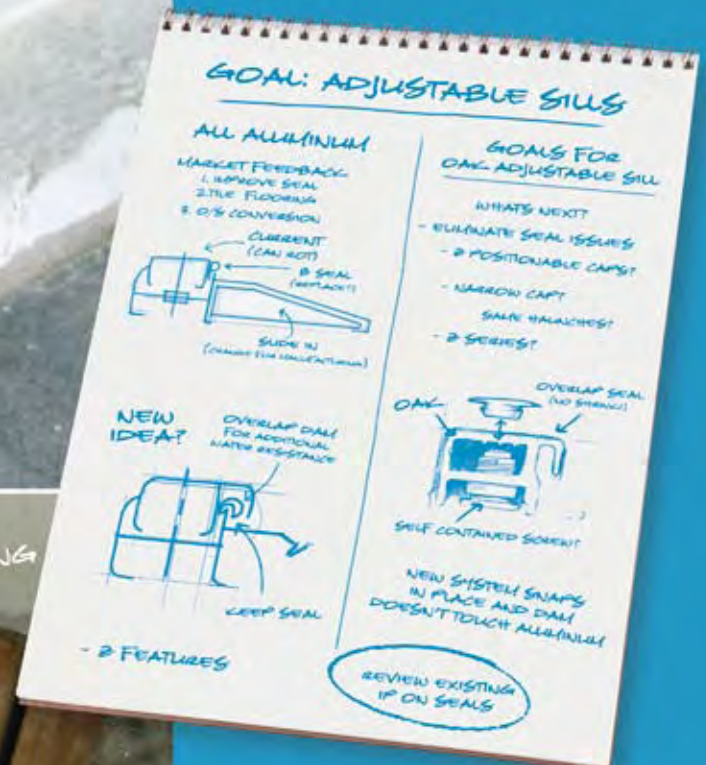 GOAL: ADJUSTABLE SILLS
ALL ALUMINUM
MARKET FEEDBACK
1. IMPROVE SEAL
2. TILE FLOORING
3. O/S CONVERSION
CURRENT
(CAN ROT)
SEAL
(REPLACE?)
SLIDE IN
(CHANGE FOR MANUFACTURING)
NEW
IDEA?
OVERLAP DAM
FOR ADDITIONAL
WATER RESISTANCE
KEEP SEAL
- 2 FEATURES
GOALS FOR
OAK ADJUSTABLE SILL
WHATS NEXT?
- ELIMINATE SEAL ISSUES
- 2 POSITIONABLE CAPS?
- NARROW CAP?
SAME HAUNCHES?
- 2 SERIES?
OAK
OVERLAP SEAL
(NO SHRINK)
SELF CONTAINED SCREW?
NEW SYSTEM SNAPS
IN PLACE AND DAM
DOESN'T TOUCH ALUMINUM
REVIEW EXISTING
IP ON SEALS